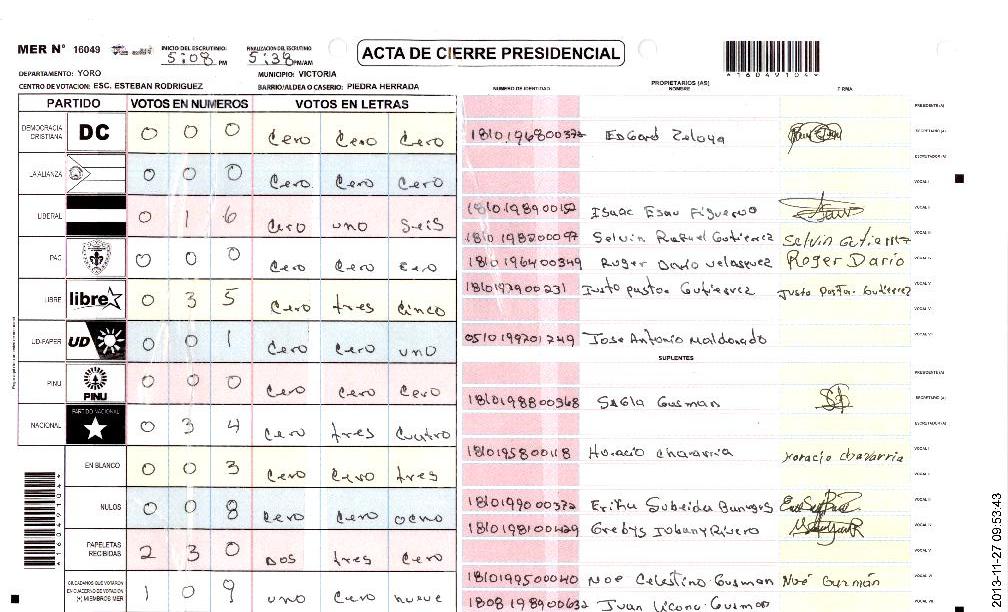 MER N° 16049
INICIO DEL ESCRUTINIO: 5:08 PM
FINALIZACION DEL ESCRUTINIO 5:38 PM/AM
ACTA DE CIERRE PRESIDENCIAL
*16049104*
DEPARTAMENTO: YORO
MUNICIPIO: VICTORIA
CENTRO DE VOTACION: ESC. ESTEBAN RODRIGUEZ
BARRIO/ALDEA O CASERIO: PIEDRA HERRADA
PARTIDO VOTOS EN NUMEROS VOTOS EN LETRAS
DEMOCRACIA CRISTIANA DC 0 0 0 Cero Cero Cero
LA ALIANZA 0 0 0 Cero Cero Cero
LIBERAL 0 1 6 Cero uno Seis
PAC 0 0 0 Cero Cero Cero
LIBRE libre 0 3 5 Cero tres Cinco
UD-FAPER UD 0 0 1 Cero Cero uno
PINU PINU 0 0 0 Cero Cero Cero
NACIONAL PARTIDO NACIONAL 0 3 4 Cero tres Cuatro
EN BLANCO 0 0 3 Cero Cero tres
NULOS 0 0 8 Cero Cero ocho
PAPELETAS RECIBIDAS 2 3 0 Dos tres Cero
CIUDADANOS QUE VOTARON EN CUADERNO DE VOTACION (+) MIEMBROS MER 1 0 9 uno Cero nueve
*16049104*
NUMERO DE IDENTIDAD
PROPIETARIOS (AS)
NOMBRE
FIRMA
PRESIDENTE (A)
1810196800372 Edgard Zelaya SECRETARIO (A)
ESCRUTADOR (A)
VOCAL I
1810198900152 Isaac Esau Figueroa VOCAL II
1810198200097 Selvin Rafael Gutierrez Selvin Gutierrez VOCAL III
1810196400349 Roger Dario Velasquez Roger Dario VOCAL IV
1810197900231 Justo pastor Gutierrez Justo Pastor Gutierrez VOCAL V
VOCAL VI
0510199201249 Jose Antonio Maldonado VOCAL VII
SUPLENTES
PRESIDENTE (A)
1810198800368 Guzman SECRETARIO (A)
ESCRUTADOR (A)
1810195800118 Horacio chavarria Horacio chavarria VOCAL I
VOCAL II
1810199000372 Subeida VOCAL III
1810198100429 Grebys Johany Rivero VOCAL IV
VOCAL V
1810199500040 Noe Celestino Gusman Noé Guzmán VOCAL VI
1808198900632 Juan Gusman VOCAL VII
2013-11-27 09:53:43